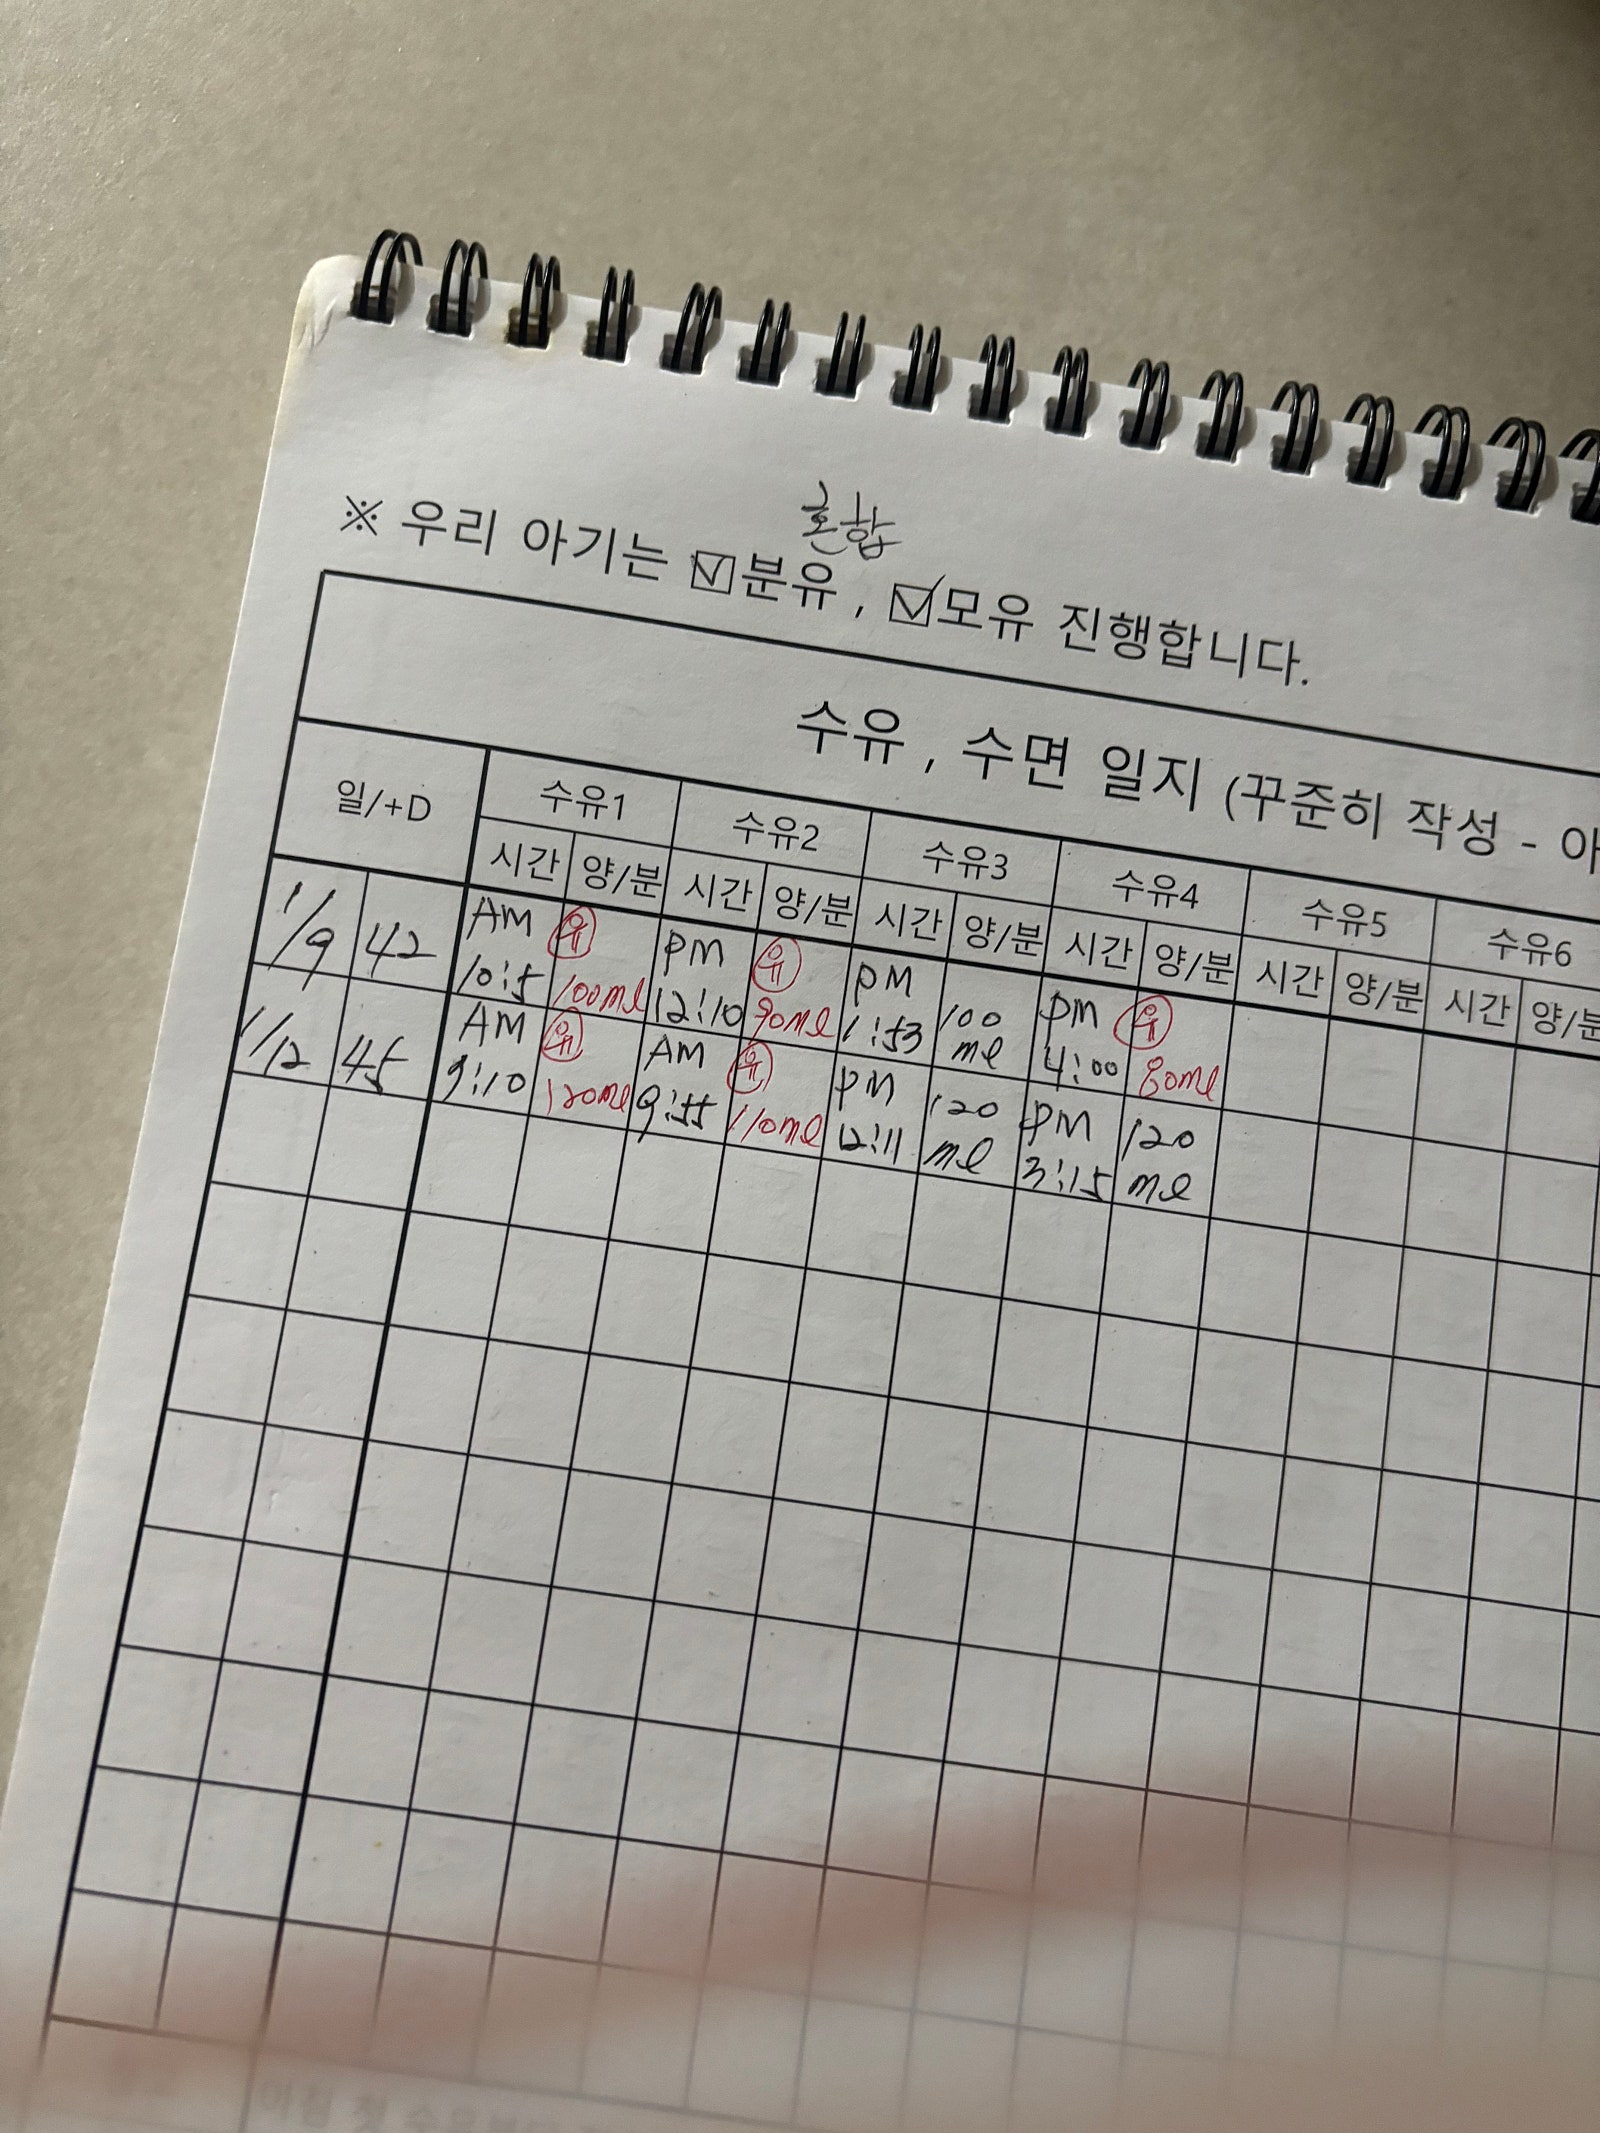 혼합
※ 우리 아기는 ☑분유 , ☑모유 진행합니다.
수유 , 수면 일지 (꾸준히 작성 - 아
일/+D 수유1 수유2 수유3 수유4 수유5 수유6
시간 양/분 시간 양/분 시간 양/분 시간 양/분 시간 양/분 시간 양/분
1/9 42 AM 10:5 유 100ml PM 12:10 유 90ml PM 1:53 100 ml PM 4:00 유 80ml
1/12 45 AM 9:10 유 120ml AM 9:55 유 110ml PM 12:11 120 ml PM 3:15 120 ml